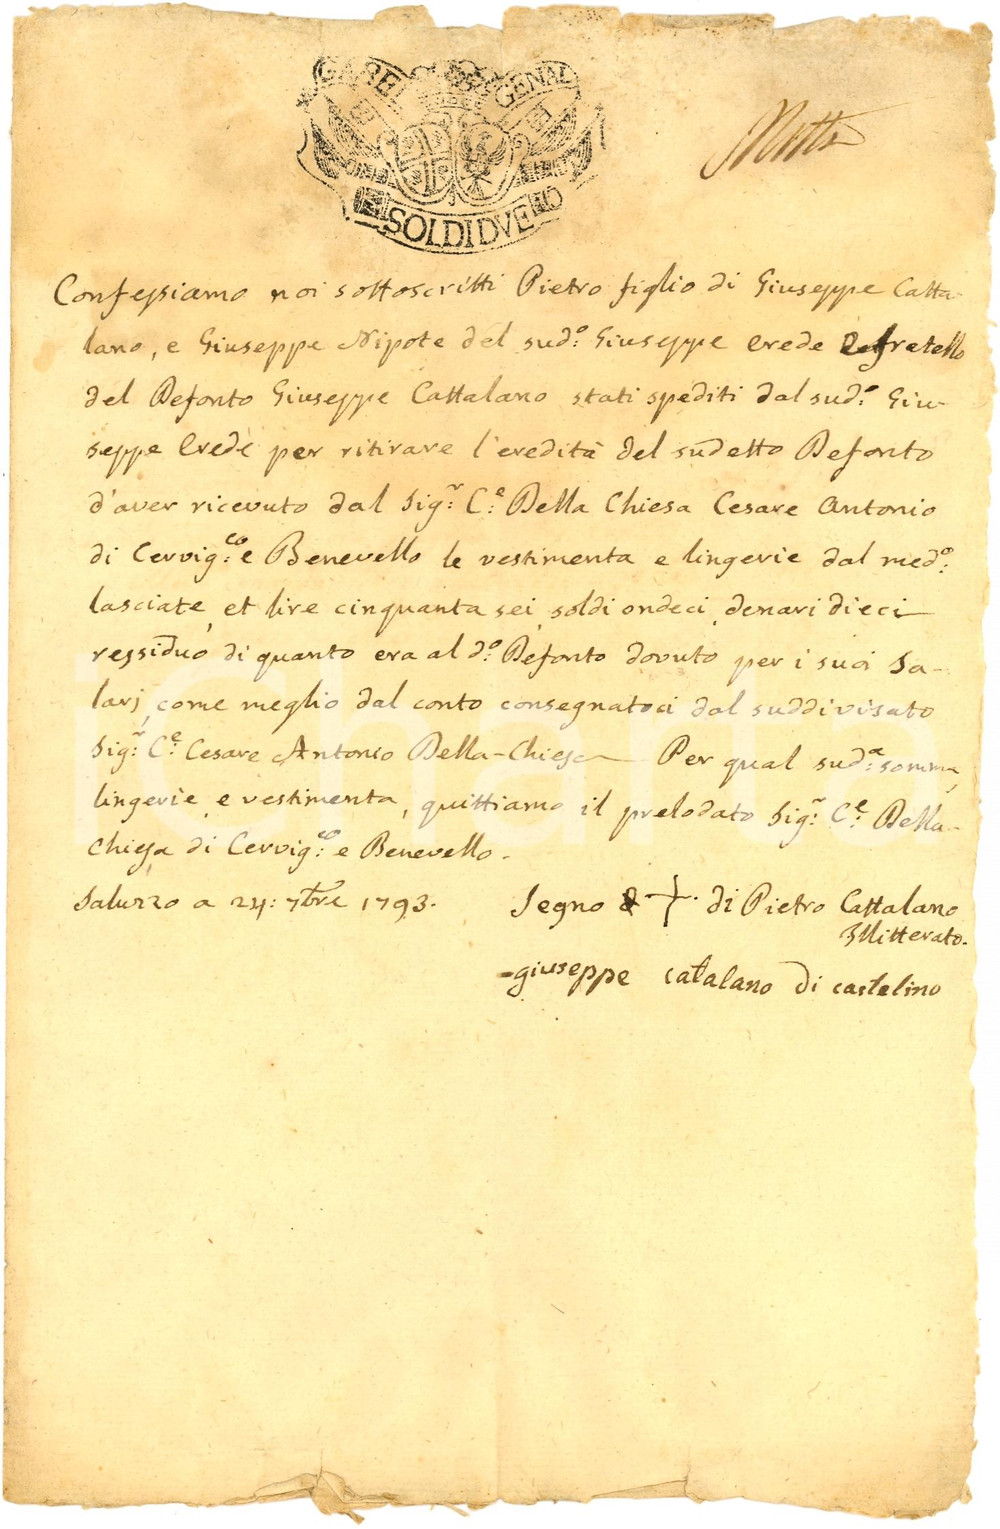 GABEL GENAL
SOLDI DVE
Confessiamo noi sottoscritti Pietro figlio di Giuseppe Catta-
lano, e Giuseppe Nipote del sud.º Giuseppe erede e fratello
del Defonto Giuseppe Cattalano stati spediti dal sud.º Giu-
seppe Erede per ritirare l'eredità del sudetto Defonto
d'aver ricevuto dal Sig.r C.e Della Chiesa Cesare Antonio
di Cervig.co e Benevello le vestimenta e lingerie dal med.º
lasciate, et lire cinquanta sei, soldi ondeci, denari dieci
ressiduo di quanto era al d.º Defonto dovuto per i suoi Sa-
larj, come meglio dal conto consegnatoci dal suddivisato
Sig.r C.e Cesare Antonio Della-Chiesa Per qual sud.a somma,
lingerie, e vestimenta, quittiamo il prelodato Sig.r C.e Della-
Chiesa di Cervig.co e Benevello.
Saluzzo a 24: 7bre 1793.
Segno + di Pietro Cattalano
Illitterato.
-giuseppe catalano di castelino